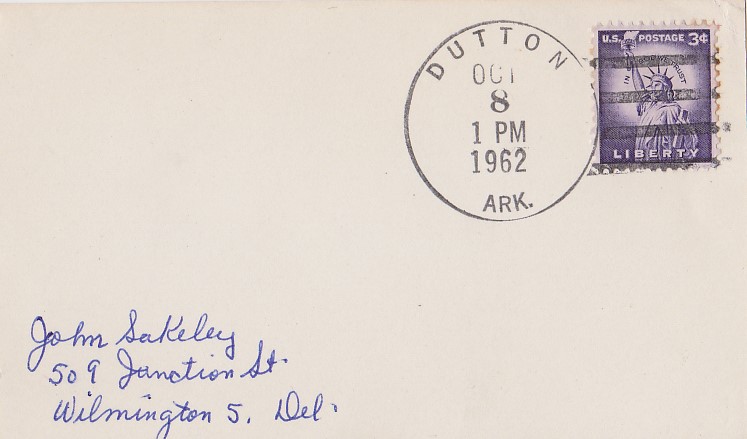 DUTTON
OCT
8
1 PM
1962
ARK.
U.S. POSTAGE 3¢
IN GOD WE TRUST
LIBERTY
John Sakeley
509 Junction St.
Wilmington 5. Del.